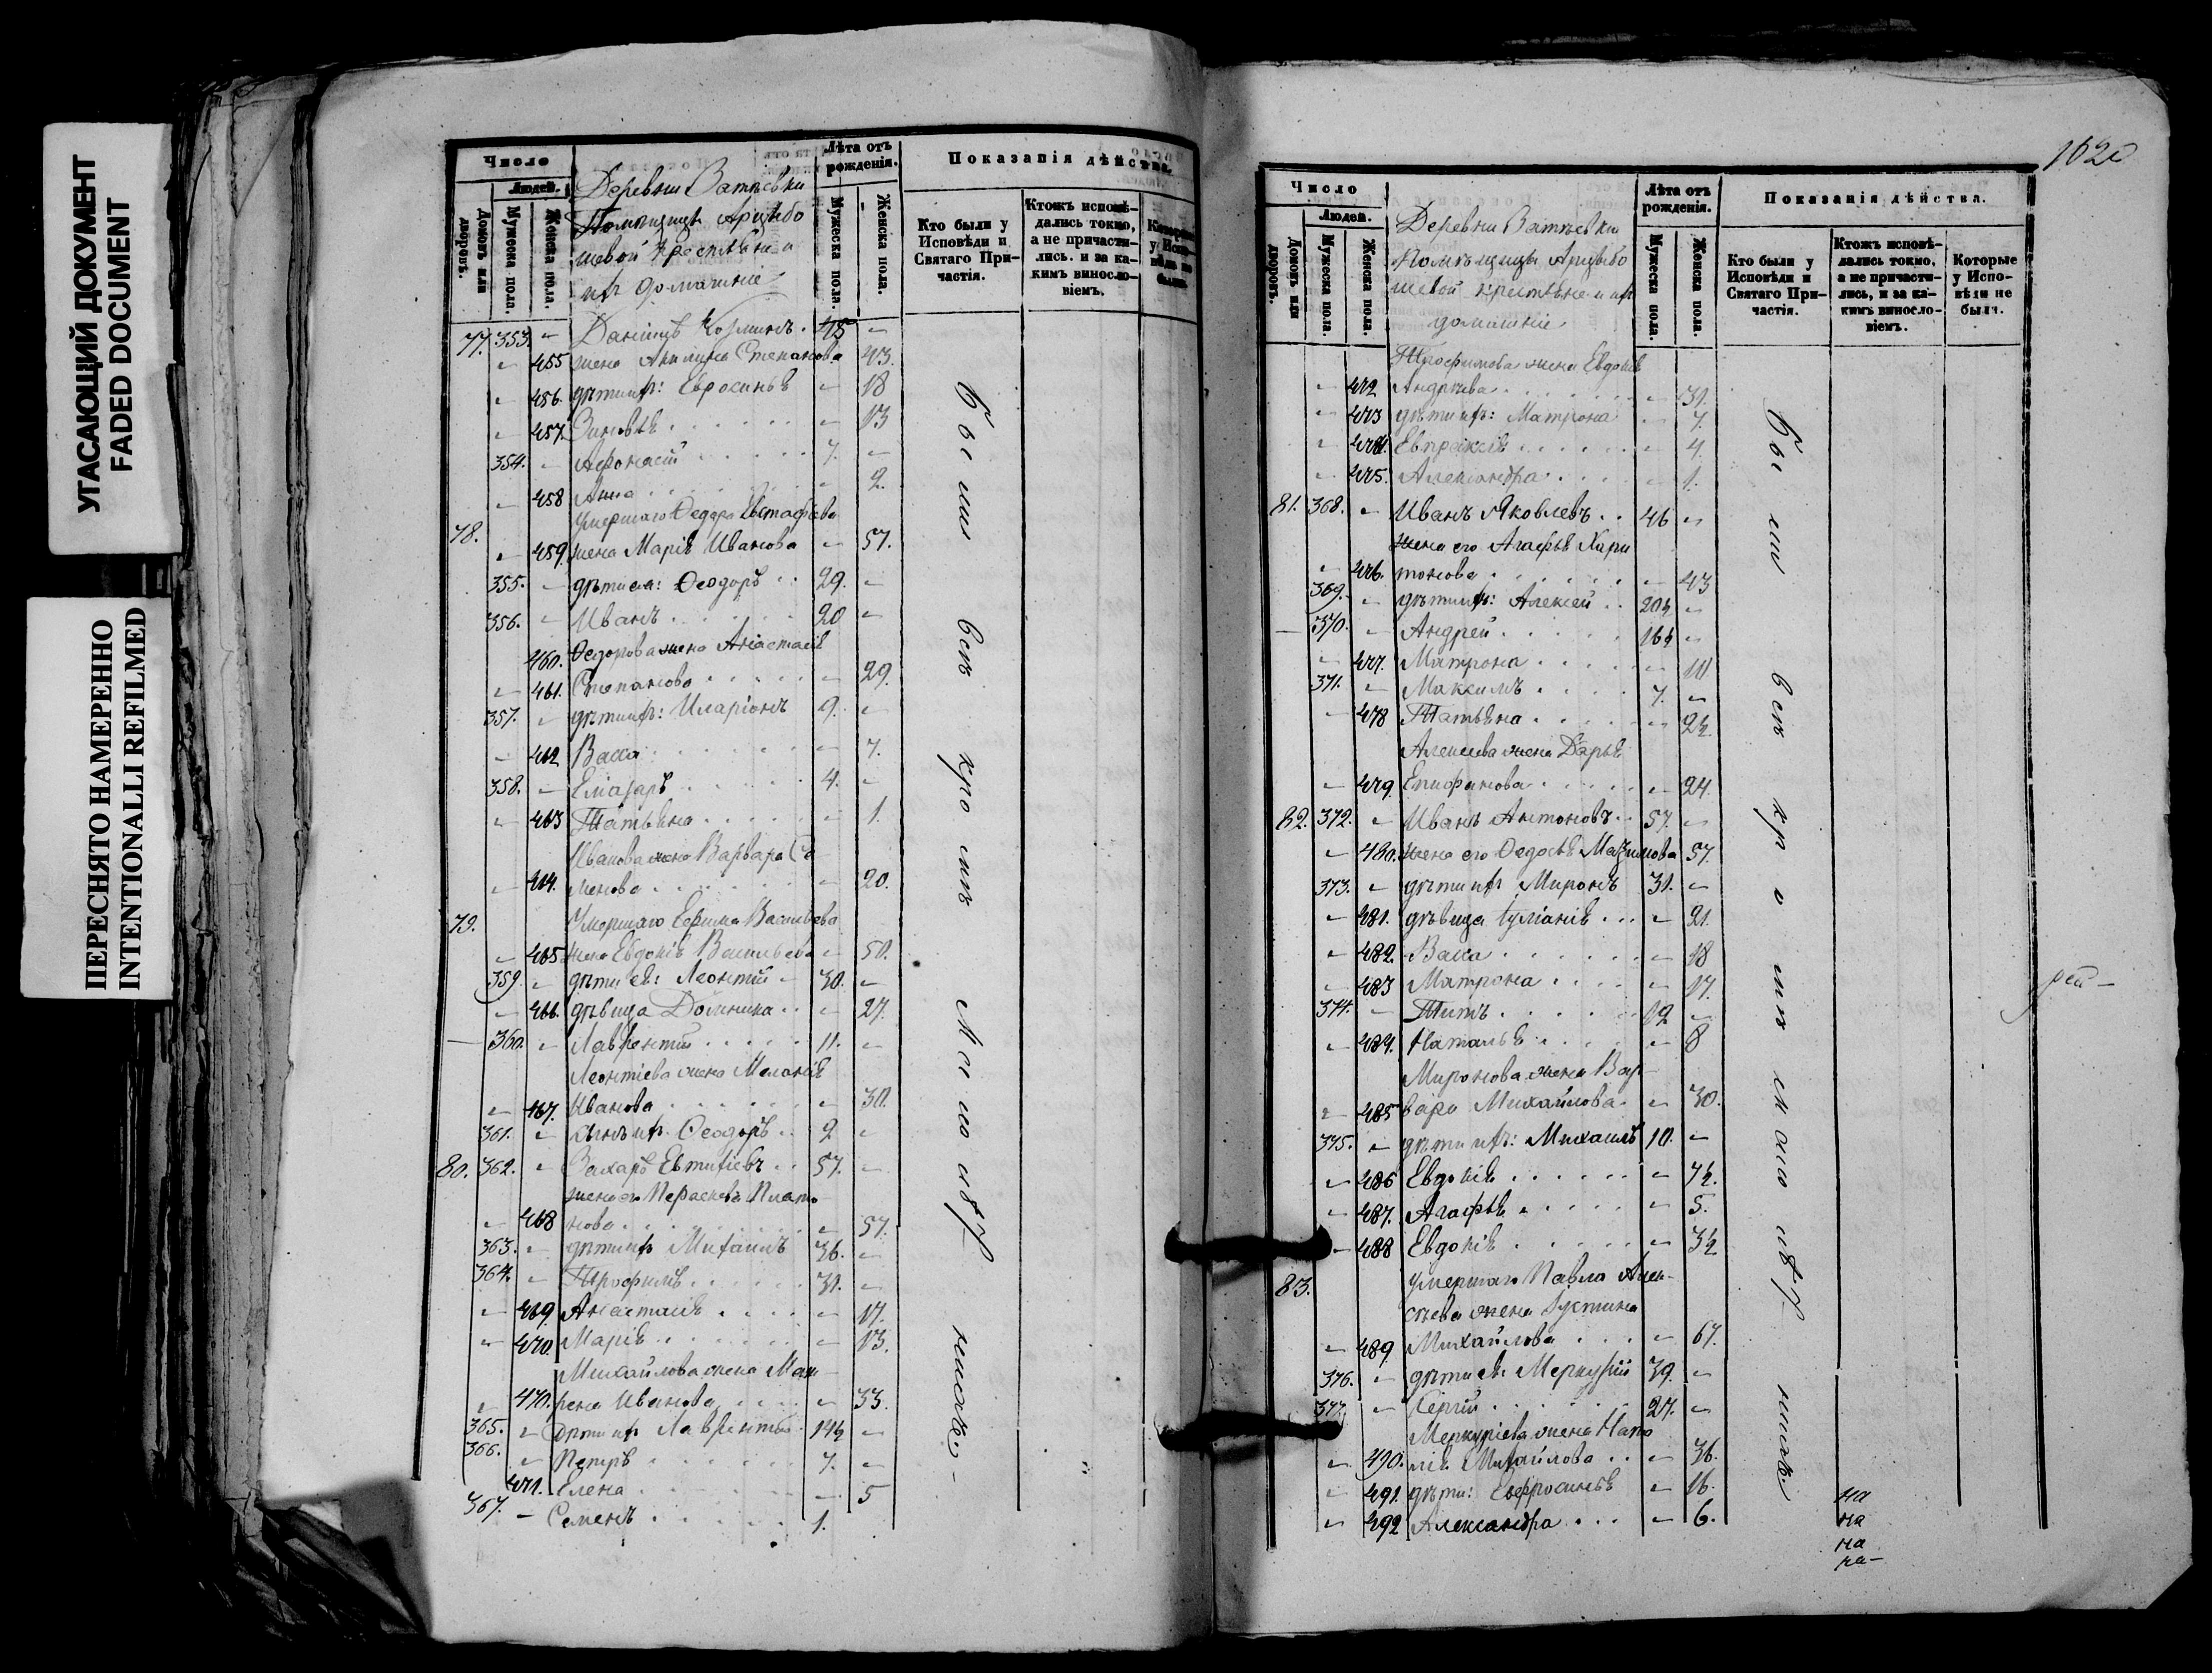 УГАСАЮЩИЙ ДОКУМЕНТ
FADED DOCUMENT
ПЕРЕСНЯТО НАМЕРЕННО
INTENTIONALLI REFILMED
Число
Людей.
Домовъ или дворовъ.
Мужеска пола.
Женска пола.
Деревни
Помѣщицы Арцыбо
шевой крестьяне и
ихъ домашніе
Лѣта отъ рожденія.
Мужеска пола.
Женска пола.
Показанія дѣйства.
Кто были у Исповѣди и Святаго Причастія.
Ктожъ исповѣдались токмо, а не причастились. и за какимъ винословіемъ.
77. 353. – Даніилъ Козминъ. 48 –
– 455 жена Акилина Степанова 43.
– 456. дѣти ихъ: Евросинья – 18
– 457. Зиновья – 13
354. – Афонасій 7. –
– 458 Анна – 2.
78. умершаго Федора Евстафьева
– 459. жена Марія Иванова – 57.
355. – дѣти ея: Ѳеодоръ 29. –
356. – Иванъ 20 –
460. Ѳедорова жена Анастасія
– 461. Степанова – 29.
357. – дѣти ихъ: Иларіонъ 9. –
– 462 Васса – 7.
358. – Елиазаръ 4. –
– 463 Татьяна – 1.
Иванова жена Варвара Се
– 464. менова – 20.
79. Умершаго Ефима Васильева
– 465 жена Евдокія Васильева – 50.
359. – дѣти ея: Леонтій 30. –
– 466. дѣвица Домника – 27.
360. – Лаврентій 11. –
Леонтіева жена Меланія
– 467. Иванова – 30.
361. – сынъ ихъ Ѳеодоръ 2 –
80. 362. – Захаръ Евтифіевъ 57. –
жена ег Параскева Плато
– 468 нова – 57.
363. – дѣти ихъ Михаилъ 36. –
364. – Трофимъ 31. –
– 469. Анастасія – 17.
– 470. Марія – 13.
Михайлова жена Мав
– 470. рена Иванова – 33.
365. – дѣти ихъ Лаврентій 14½ –
366. – Петръ 7. –
471. Елена – 5
367. – Семенъ 1.
Были всѣ кромѣ малолѣт нихъ.
162
Число
Людей.
Домовъ или дворовъ.
Мужеска пола.
Женска пола.
Деревни
Помѣщицы Арцыбо
шевой крестьяне и ихъ
домашніе
Лѣта отъ рожденія.
Мужеска пола.
Женска пола.
Показанія дѣйства.
Кто были у Исповѣди и Святаго Причастія.
Ктожъ исповѣдались токмо, а не причастились, и за какимъ винословіемъ.
Которые у Исповѣди не были.
Трофимова жена Евдокія
– 472 Андреева – 31.
– 473 дѣти ихъ: Матрона – 7.
– 474. Евпраксія – 4.
– 475. Александра – 1.
81. 368. – Иванъ Яковлевъ 46 –
жена его Агафья Хари
– 476. тонова – 43
369. – дѣти ихъ: Алексей 20½ –
370. – Андрей 16½ –
– 477. Матрона – 10
371. – Максимъ 7. –
– 478 Татьяна – 2½
Алексеева жена Дарья
– 479. Епифанова – 24
82. 372. – Иванъ Антоновъ 57. –
– 480. жена его Ѳедосья 57.
373. – дѣти ихъ Миронъ 31. –
– 481. дѣвица Іуліанія – 21.
– 482. Васса – 18
– 483 Матрона – 17.
374. – Титъ 12 –
– 484. Наталья – 8
Миронова жена Вар
– 485 вара Михайлова – 30.
375. – дѣти ихъ: Михаилъ 10. –
– 486 Евдокія – 7½.
– 487. Агафья – 5.
– 488 Евдокія – 3½
83. умершаго Павла Алек-
сѣева жена Іустина
– 489. Михайлова – 67.
376. – дѣти ея: Меркурій 39. –
377. – Сергій 27. –
Меркуріева жена Ната
– 490. лія Михайлова – 36.
– 491. дѣти: Евфросинья – 16.
– 492 Александра – 6.
Были всѣ кромѣ малолѣт нихъ.
на
на
на
на–